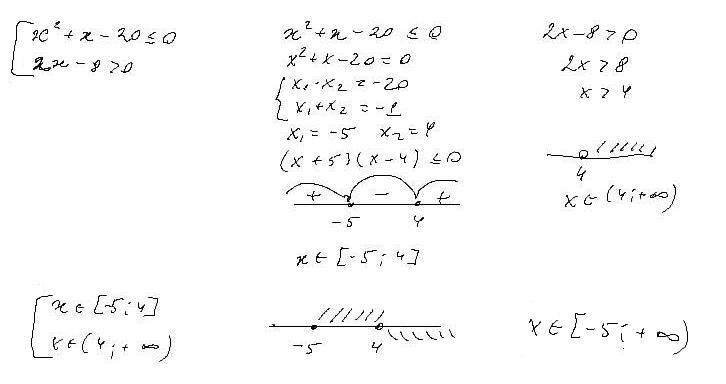 [ x² + x - 20 ≤ 0
2x - 8 > 0
x² + x - 20 ≤ 0
x² + x - 20 = 0
{ x₁ · x₂ = -20
x₁ + x₂ = -1
x₁ = -5 x₂ = 4
(x + 5)(x - 4) ≤ 0
+ - +
-5 4
x ∈ [-5; 4]
2x - 8 > 0
2x > 8
x > 4
4
x ∈ (4; +∞)
[ x ∈ [-5; 4]
x ∈ (4; +∞)
-5 4
x ∈ [-5; +∞)